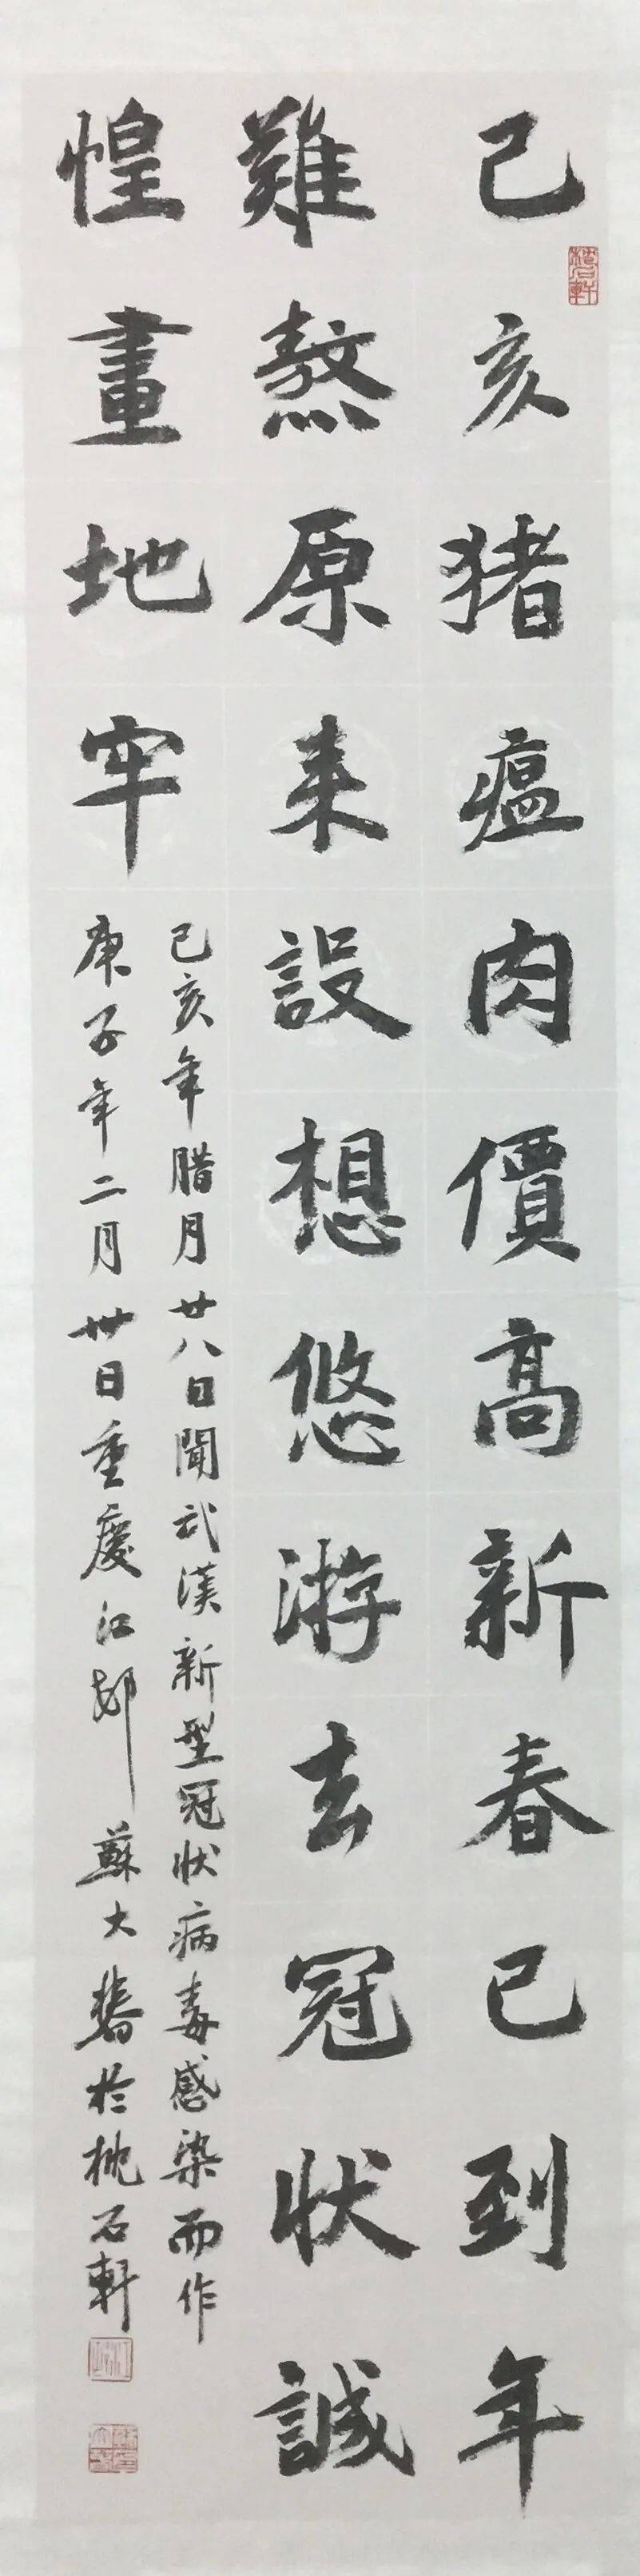 己亥猪瘟肉價高新春已到年
難熬原来設想悠游去冠狀誠
惶畫地牢
己亥年腊月廿八日聞武漢新型冠狀病毒感染而作
庚子年二月卅日重慶江邨 蘇大於枕石軒